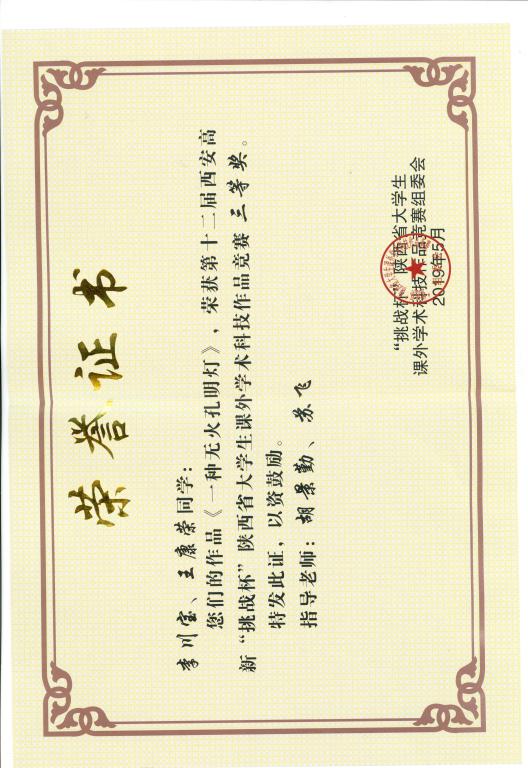 荣誉证书
李川宝、王康荣同学：
您们的作品《一种无火孔明灯》，荣获第十二届西安高
新“挑战杯”陕西省大学生课外学术科技作品竞赛三等奖。
特发此证，以资鼓励。
指导老师：胡景勤、苏飞
“挑战杯”陕西省大学生
课外学术科技作品竞赛组委会
2019年5月